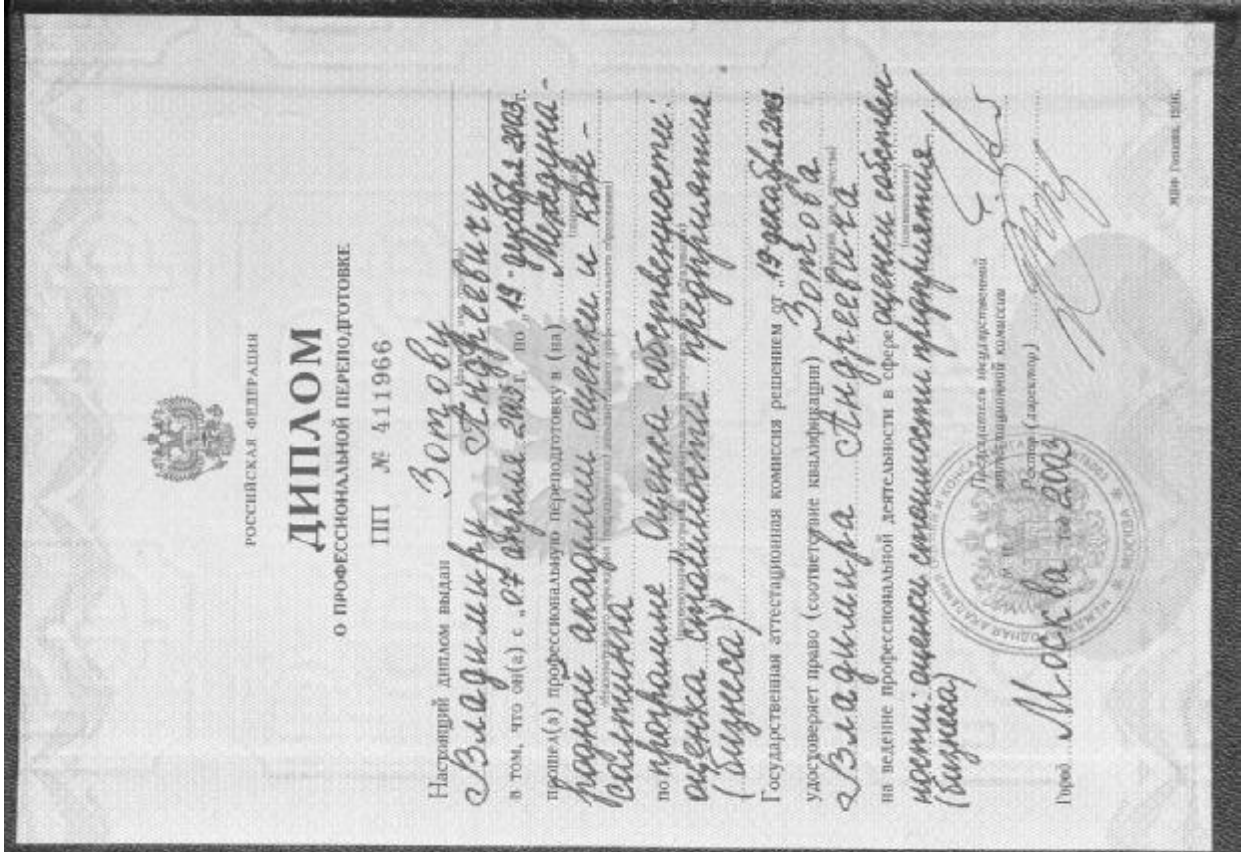 РОССИЙСКАЯ ФЕДЕРАЦИЯ
ДИПЛОМ
О ПРОФЕССИОНАЛЬНОЙ ПЕРЕПОДГОТОВКЕ
ПП № 411966
Настоящий диплом выдан Зотову
Владимиру Андреевичу
в том, что он(а) с „07 апреля 2003 г. по „19" декабря 2003 г.
прошел(а) профессиональную переподготовку в (на) Междуна-
родной академии оценки и кон-
салтинга
по программе Оценка собственности:
оценка стоимости предприятия
(бизнеса)
Государственная аттестационная комиссия решением от „19 декабря 2003
удостоверяет право (соответствие квалификации) Зотова
Владимира Андреевича
на ведение профессиональной деятельности в сфере оценки собствен-
ности: оценки стоимости предприятия
(бизнеса)
Председатель государственной
аттестационной комиссии
Ректор (директор)
Город Москва 2003
МОСКВА